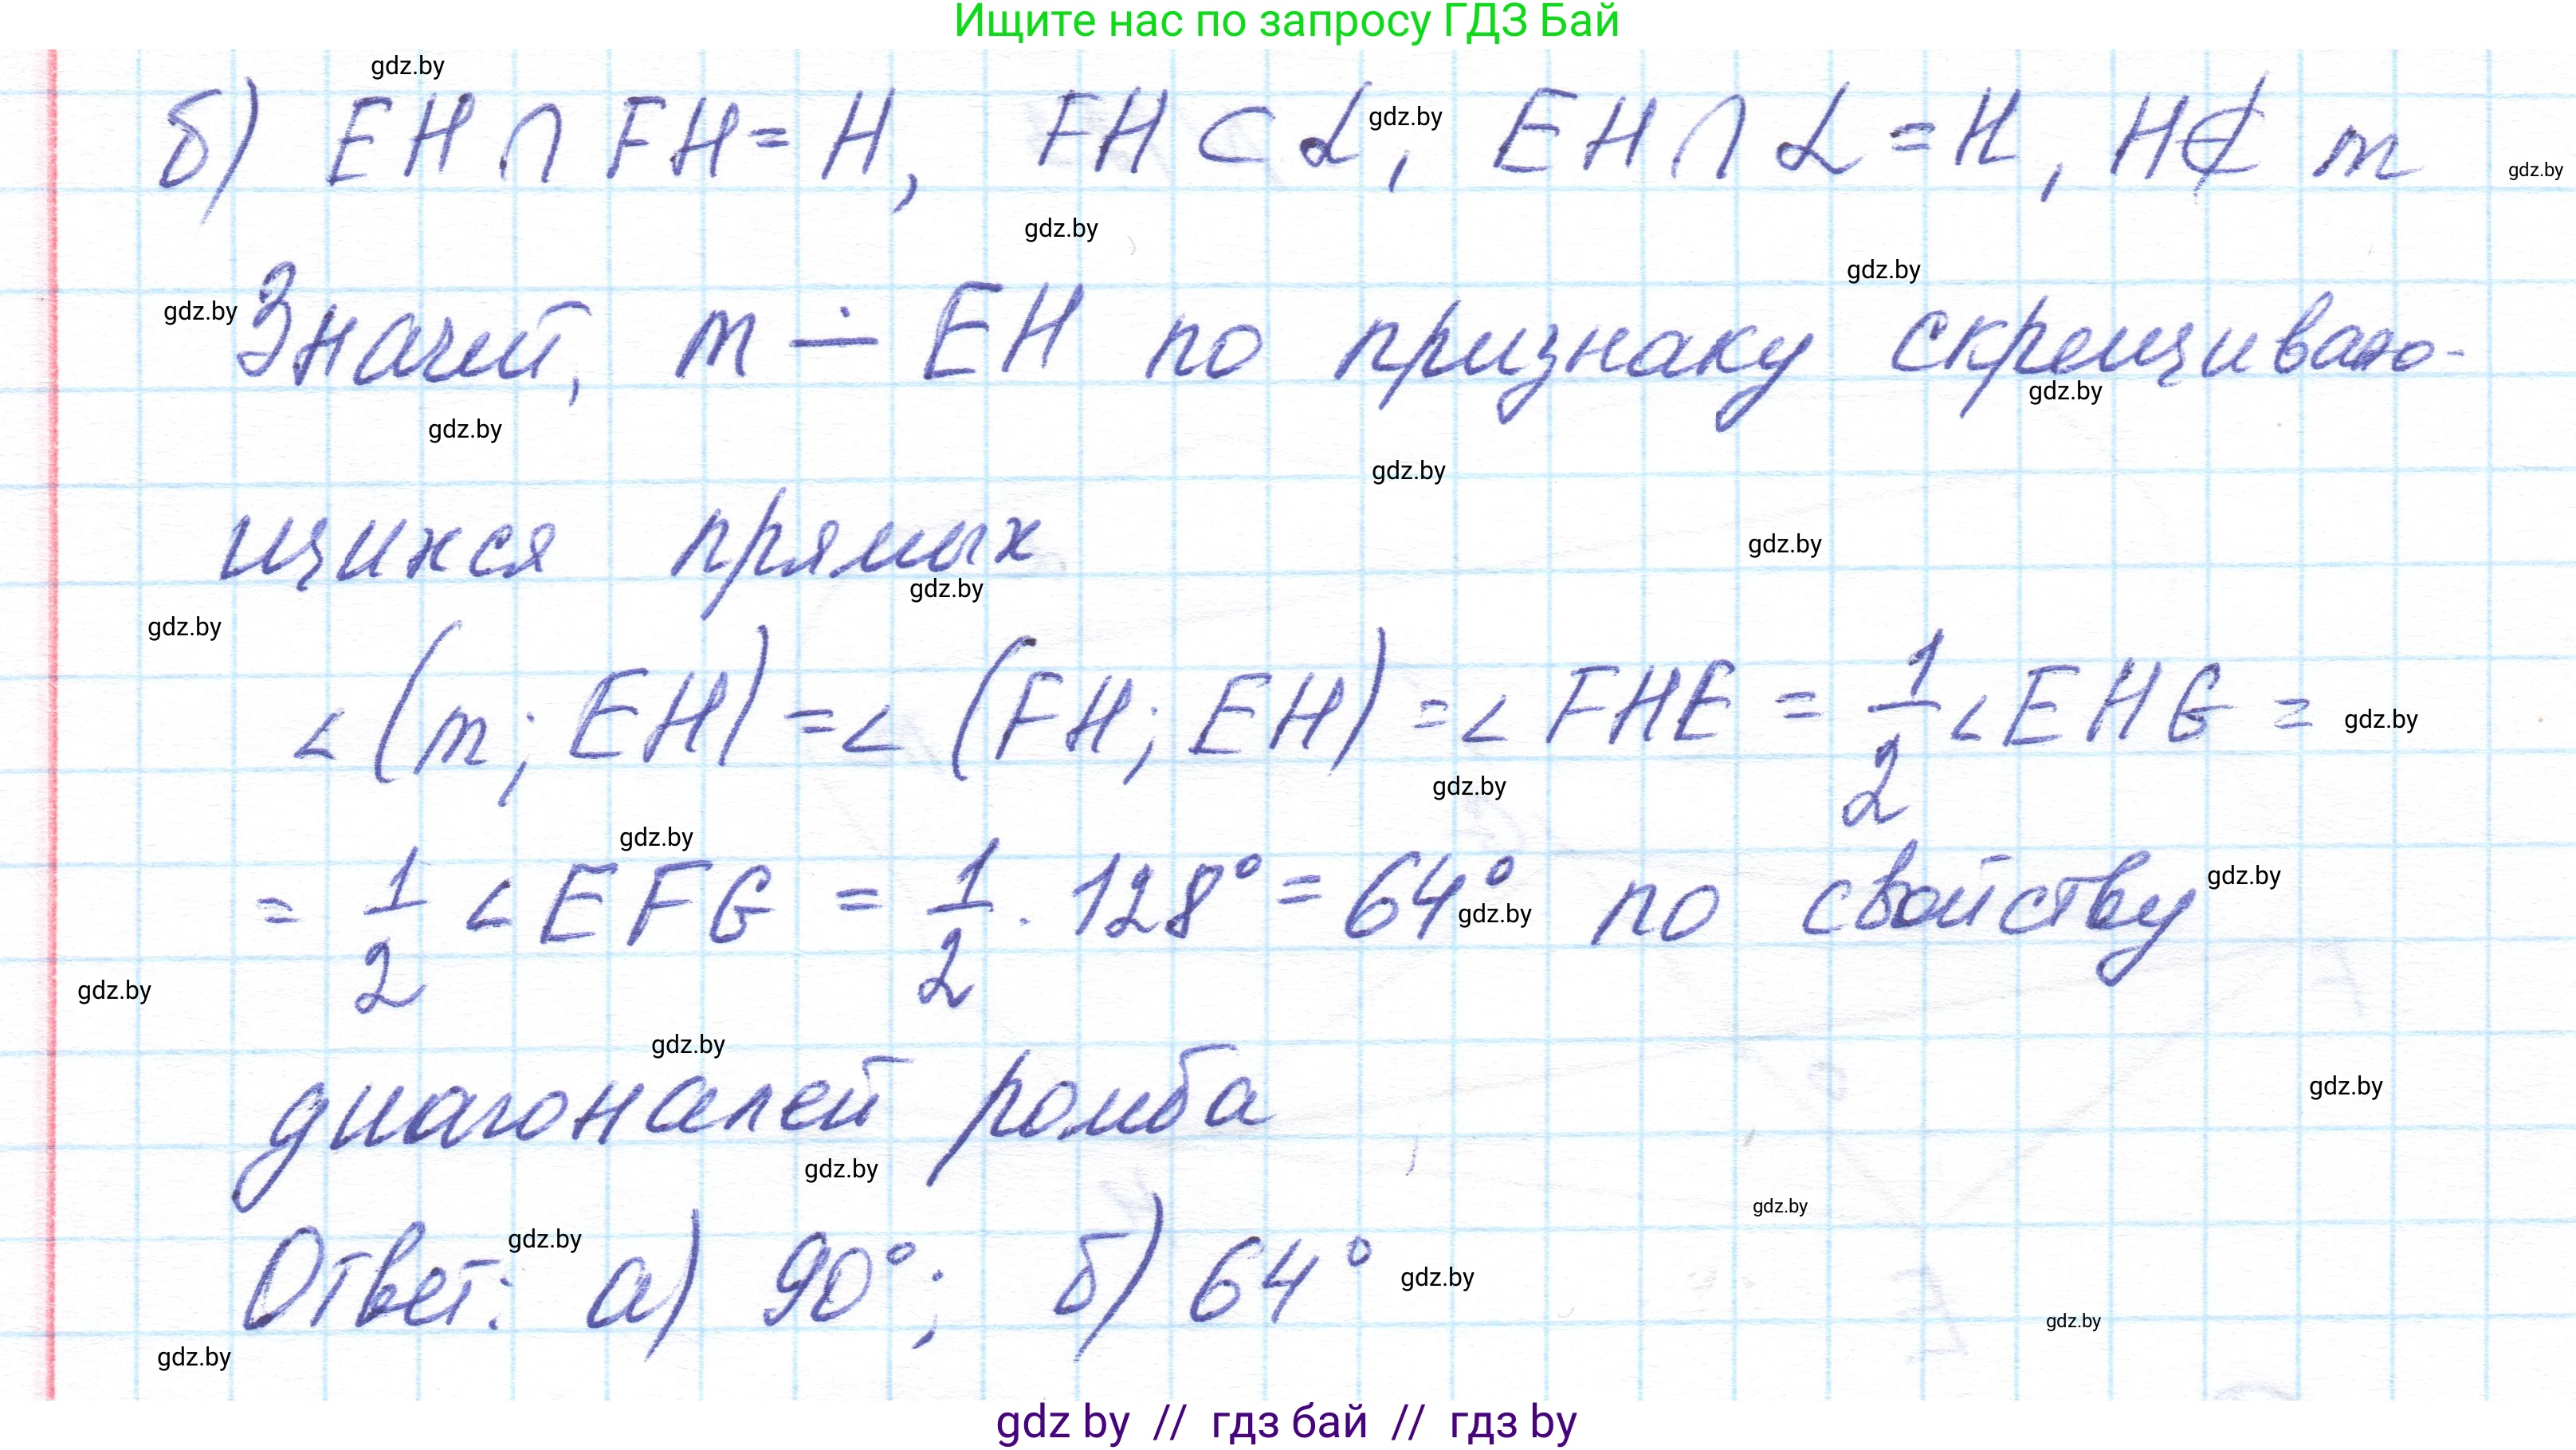 Ищите нас по запросу ГДЗ Бай
gdz.by
б) EH ∩ FH = H, FH ⊂ α, EH ∩ α = H, H ∉ m
gdz.by
gdz.by
gdz.by
gdz.by
gdz.by
Значит, m ∸ EH по признаку скрещиваю-
gdz.by
gdz.by
gdz.by
щихся прямых
gdz.by
gdz.by
gdz.by
∠(m; EH) = ∠(FH; EH) = ∠FHE = 1/2 ∠EHG =
gdz.by
gdz.by
gdz.by
= 1/2 ∠EFG = 1/2 · 128° = 64° по свойству
gdz.by
gdz.by
gdz.by
gdz.by
диагоналей ромба
gdz.by
gdz.by
gdz.by
Ответ: а) 90°; б) 64°
gdz.by
gdz.by
gdz.by
gdz.by
gdz by // гдз бай // гдз by